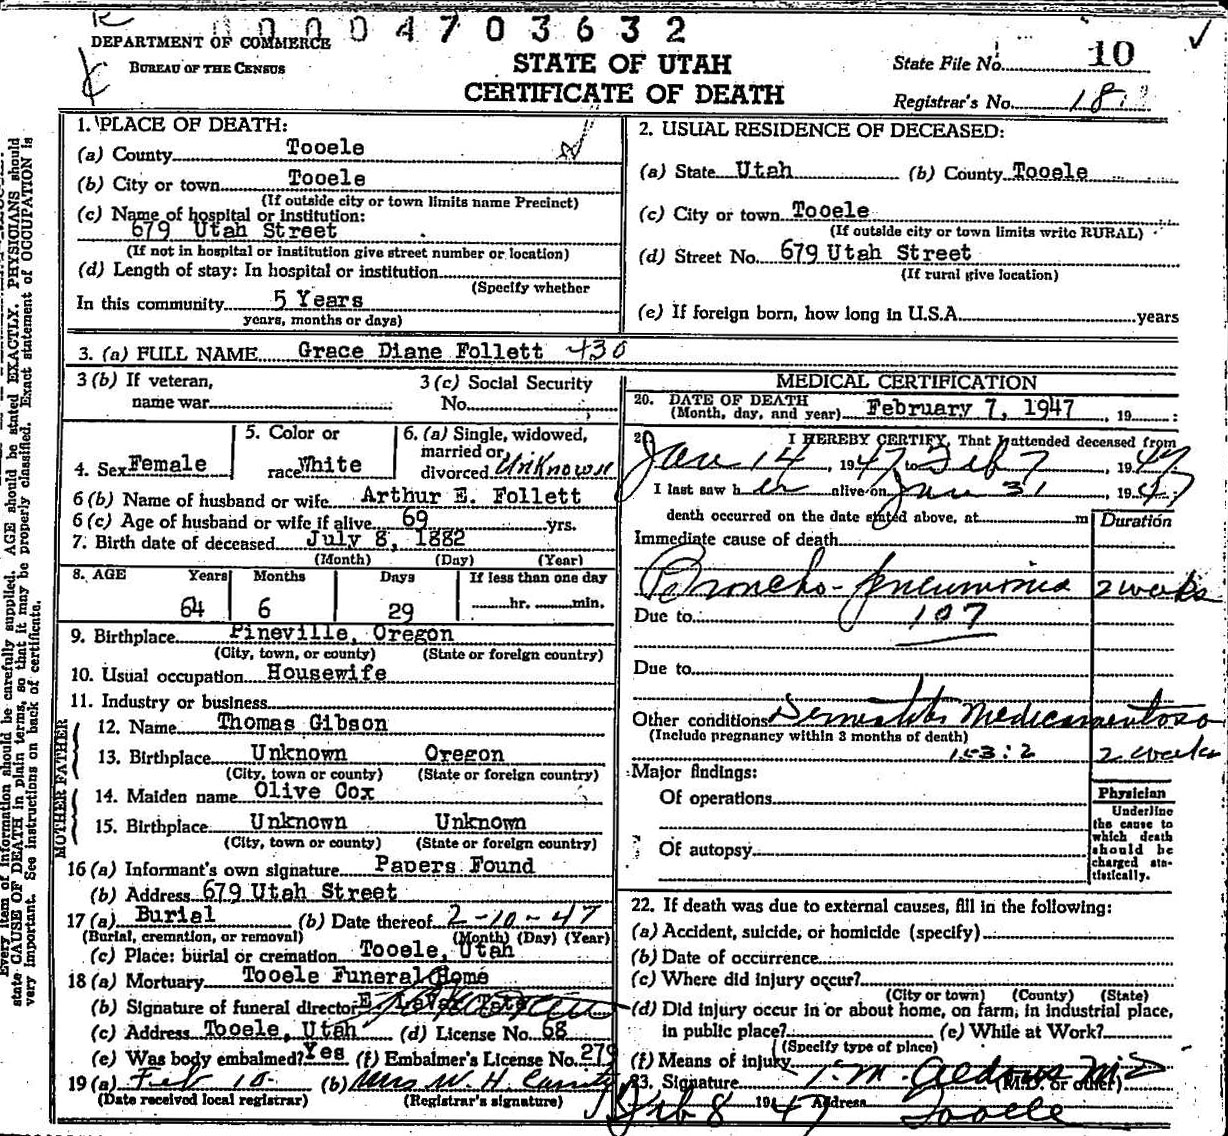 0004703632
DEPARTMENT OF COMMERCE
BUREAU OF THE CENSUS
STATE OF UTAH
CERTIFICATE OF DEATH
State File No. 10
Registrar's No. 18
1. PLACE OF DEATH:
(a) County Tooele
(b) City or town Tooele
(If outside city or town limits name Precinct)
(c) Name of hospital or institution:
679 Utah Street
(If not in hospital or institution give street number or location)
(d) Length of stay: In hospital or institution
(Specify whether
In this community 5 Years
years, months or days)
2. USUAL RESIDENCE OF DECEASED:
(a) State Utah (b) County Tooele
(c) City or town Tooele
(If outside city or town limits write RURAL)
(d) Street No. 679 Utah Street
(If rural give location)
(e) If foreign born, how long in U.S.A. years
3. (a) FULL NAME Grace Diane Follett 430
3 (b) If veteran,
name war
3 (c) Social Security
No.
4. Sex Female
5. Color or
race White
6. (a) Single, widowed,
married or
divorced Unknown
6 (b) Name of husband or wife Arthur E. Follett
6 (c) Age of husband or wife if alive 69 yrs.
7. Birth date of deceased July 8, 1882
(Month) (Day) (Year)
8. AGE Years Months Days If less than one day
64 6 29 hr. min.
9. Birthplace Pineville, Oregon
(City, town, or county) (State or foreign country)
10. Usual occupation Housewife
11. Industry or business
FATHER
12. Name Thomas Gibson
13. Birthplace Unknown Oregon
(City, town or county) (State or foreign country)
MOTHER
14. Maiden name Olive Cox
15. Birthplace Unknown Unknown
(City, town or county) (State or foreign country)
16 (a) Informant's own signature Papers Found
(b) Address 679 Utah Street
17 (a) Burial (b) Date thereof 2-10-47
(Burial, cremation, or removal) (Month) (Day) (Year)
(c) Place: burial or cremation Tooele, Utah
18 (a) Mortuary Tooele Funeral Home
(b) Signature of funeral director E.
(c) Address Tooele, Utah (d) License No. 68
(e) Was body embalmed? Yes (f) Embalmer's License No. 279
19 (a) Feb 10- (b) Mrs W. H.
(Date received local registrar) (Registrar's signature)
MEDICAL CERTIFICATION
20. DATE OF DEATH
(Month, day, and year) February 7, 1947, 19
I HEREBY CERTIFY, That I attended deceased from
Jan 14, 1947, to Feb 7, 1947
I last saw her alive on Jan 31, 1947;
death occurred on the date stated above, at m
Duration
Immediate cause of death
Broncho-pneumonia 2 weeks
Due to 107
Due to
Other conditions Dermatitis Medicamentosa
(Include pregnancy within 3 months of death)
153:2 2 weeks
Major findings:
Of operations
Of autopsy
Physician
Underline
the cause to
which death
should be
charged sta-
tistically.
22. If death was due to external causes, fill in the following:
(a) Accident, suicide, or homicide (specify)
(b) Date of occurrence
(c) Where did injury occur?
(City or town) (County) (State)
(d) Did injury occur in or about home, on farm, in industrial place,
in public place? (e) While at Work?
(Specify type of place)
(f) Means of injury
23. Signature T. M. Aldous MD (M.D. or other)
Feb 8 1947 Address Tooele
Every item of information should be carefully supplied. AGE should be stated EXACTLY. PHYSICIANS should
state CAUSE OF DEATH in plain terms, so that it may be properly classified. Exact statement of OCCUPATION is
very important. See instructions on back of certificate.